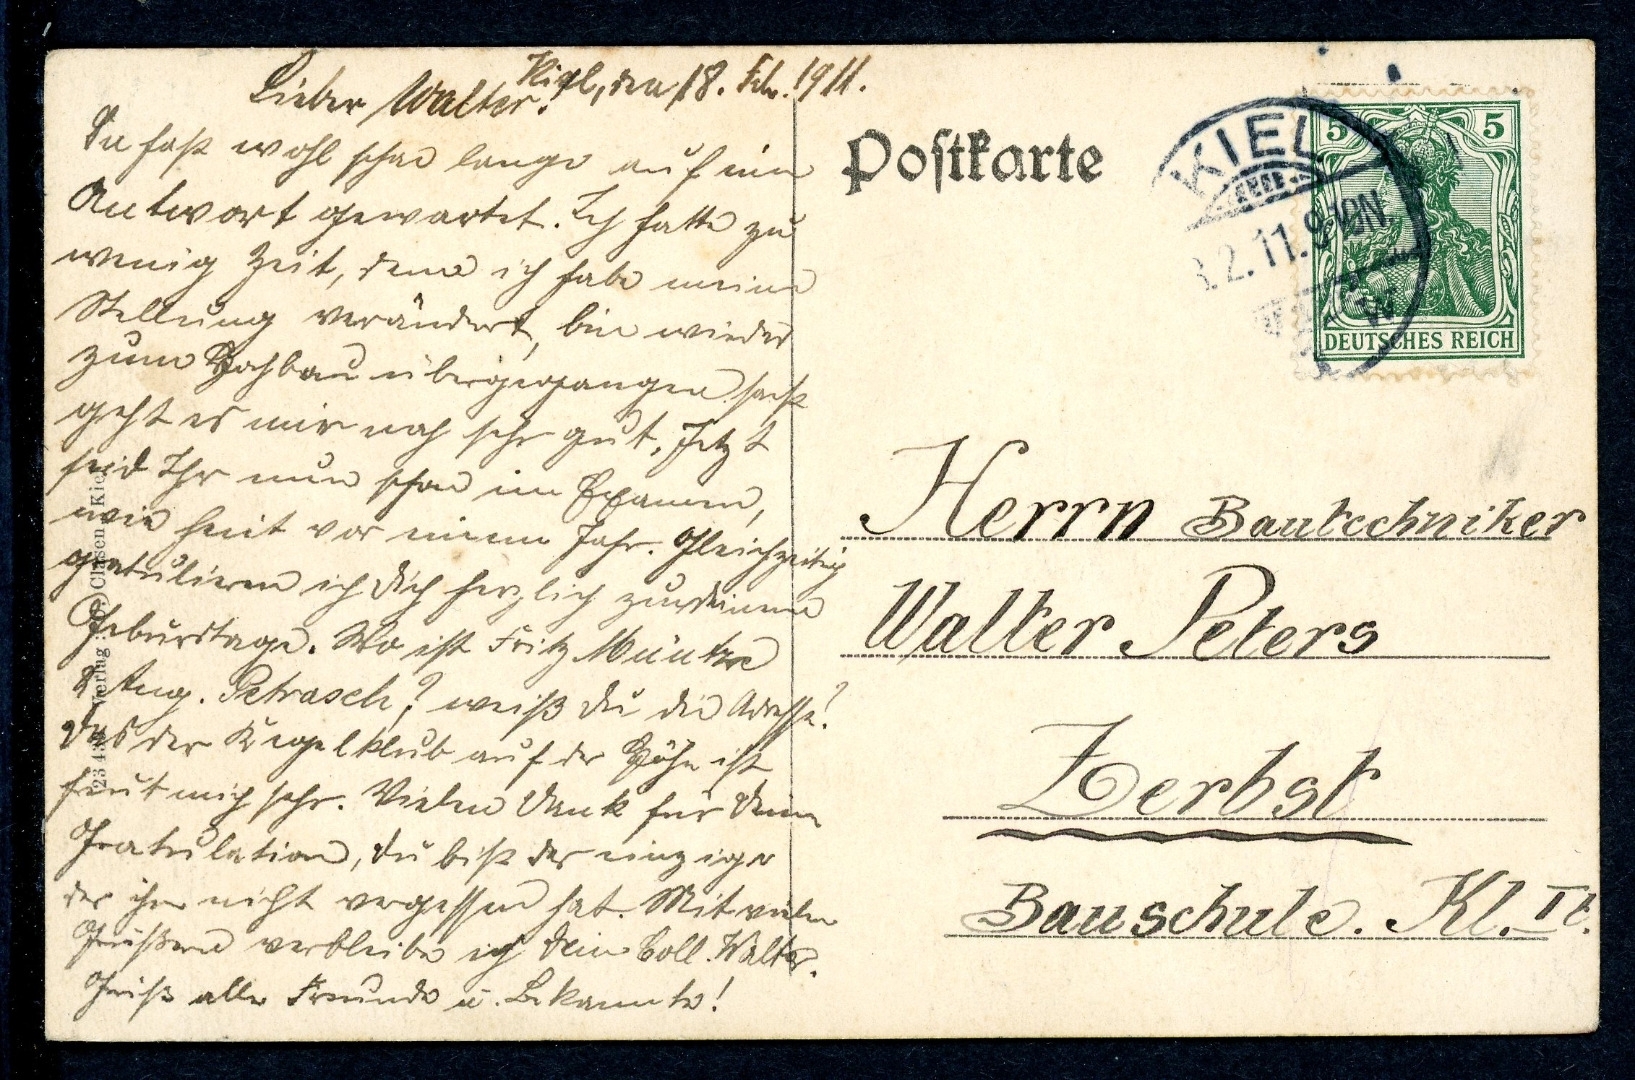 Kiel, den 18. Feb. 1911.
Lieber Walter!
Du hast wohl schon lange auf eine
Antwort gewartet. Ich hatte zu
wenig Zeit, denn ich habe meine
Stellung verändert, bin wieder
zum Hochbau übergegangen sonst
geht es mir noch sehr gut. Jetzt
seid Ihr nun schon im Examen,
wie heut vor einem Jahr. Gleichzeitig
gratulieren ich Dich herzlich zum deinem
Geburdtage. Wo ist Fritz Müntze
& Aug. Petrasch? weißt du die Adresse?
Das der Kegelklub auf der Höhe ist
freut mich sehr. Vielen Dank für deine
Gratulation, du bist der einzige
der ihn nicht vergessen hat. Mit vielen
Grüßen verbleibe ich dein Coll. Walter.
Grüß alle Freunde u. Bekannte!
Postkarte
KIEL
2.11.9-10N
W
5 5
DEUTSCHES REICH
Herrn Bautechniker
Walter Peters
Zerbst
Bauschule. Kl. II b.
Verlag: Clasen, Kiel